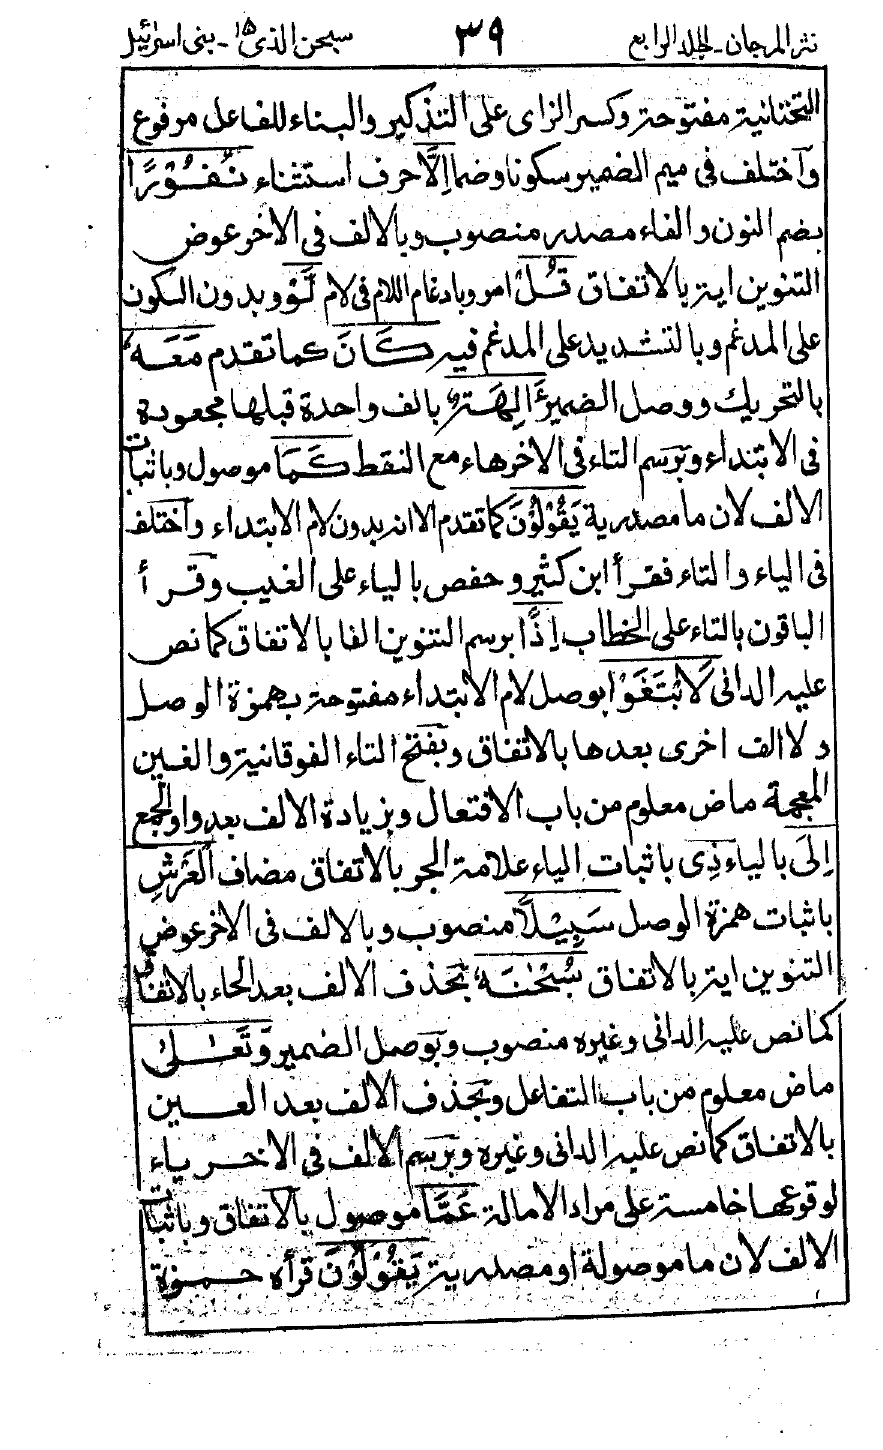 نثر المرجان - الجلد الرابع ٣٩ سبحن الذى ١٥ - بنى اسرائيل
التحتانية مفتوحة وكسر الزاى على التذكير والبناء للفاعل مرفوع
واختلف فى ميم الضمير سكونا وضما اِلَّا حرف استثناء نُفُوْرًا
بضم النون والفاء مصدر منصوب وبالالف فى الاخر عوض
التنوين اية بالاتفاق قُلْ امر وبادغام اللام فى لام لَّوْ وبدون السكون
على المدغم وبالتشديد على المدغم فيه كَانَ كما تقدم مَعَهٗ
بالتحريك ووصل الضمير ءَالِهَةٌ بالف واحدة قبلها مجعودة
فى الابتداء وبرسم التاء فى الاخر هاء مع النقط كَمَا موصول وباثبات
الالف لان ما مصدرية يَقُوْلُوْنَ كما تقدم الا انه بدون لام الابتداء واختلف
فى الياء والتاء فقرأ ابن كثير وحفص بالياء على الغيب وقرأ
الباقون بالتاء على الخطاب اِذًا برسم التنوين الفا بالاتفاق كما نص
عليه الدانى لَابْتَغَوْا بوصل لام الابتداء مفتوحة بهمزة الوصل
ولا الف اخرى بعدها بالاتفاق وبفتح التاء الفوقانية والغين
المعجمة ماض معلوم من باب الافتعال وبزيادة الالف بعد واو الجمع
اِلَى بالياء ذِى باثبات الياء علامة الجر بالاتفاق مضاف الْعَرْشِ
باثبات همزة الوصل سَبِيْلًا منصوب وبالالف فى الاخر عوض
التنوين اية بالاتفاق سُبْحٰنَهٗ بحذف الالف بعد الحاء بالاتفاق
كما نص عليه الدانى وغيره منصوب وبوصل الضمير وَتَعٰلٰى
ماض معلوم من باب التفاعل وبحذف الالف بعد العين
بالاتفاق كما نص عليه الدانى وغيره وبرسم الالف فى الاخر ياء
لوقوعها خامسة على مراد الامالة عَمَّا موصول بالاتفاق وباثبات
الالف لان ما موصولة او مصدرية يَقُوْلُوْنَ قرأه حمزة